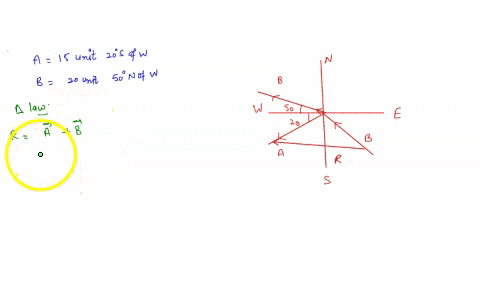 A = 15 unit 20°S of W
B = 20 unit 50°N of W
Δ law
R = A - B
N
B
W
50
E
20
A
B
R
S